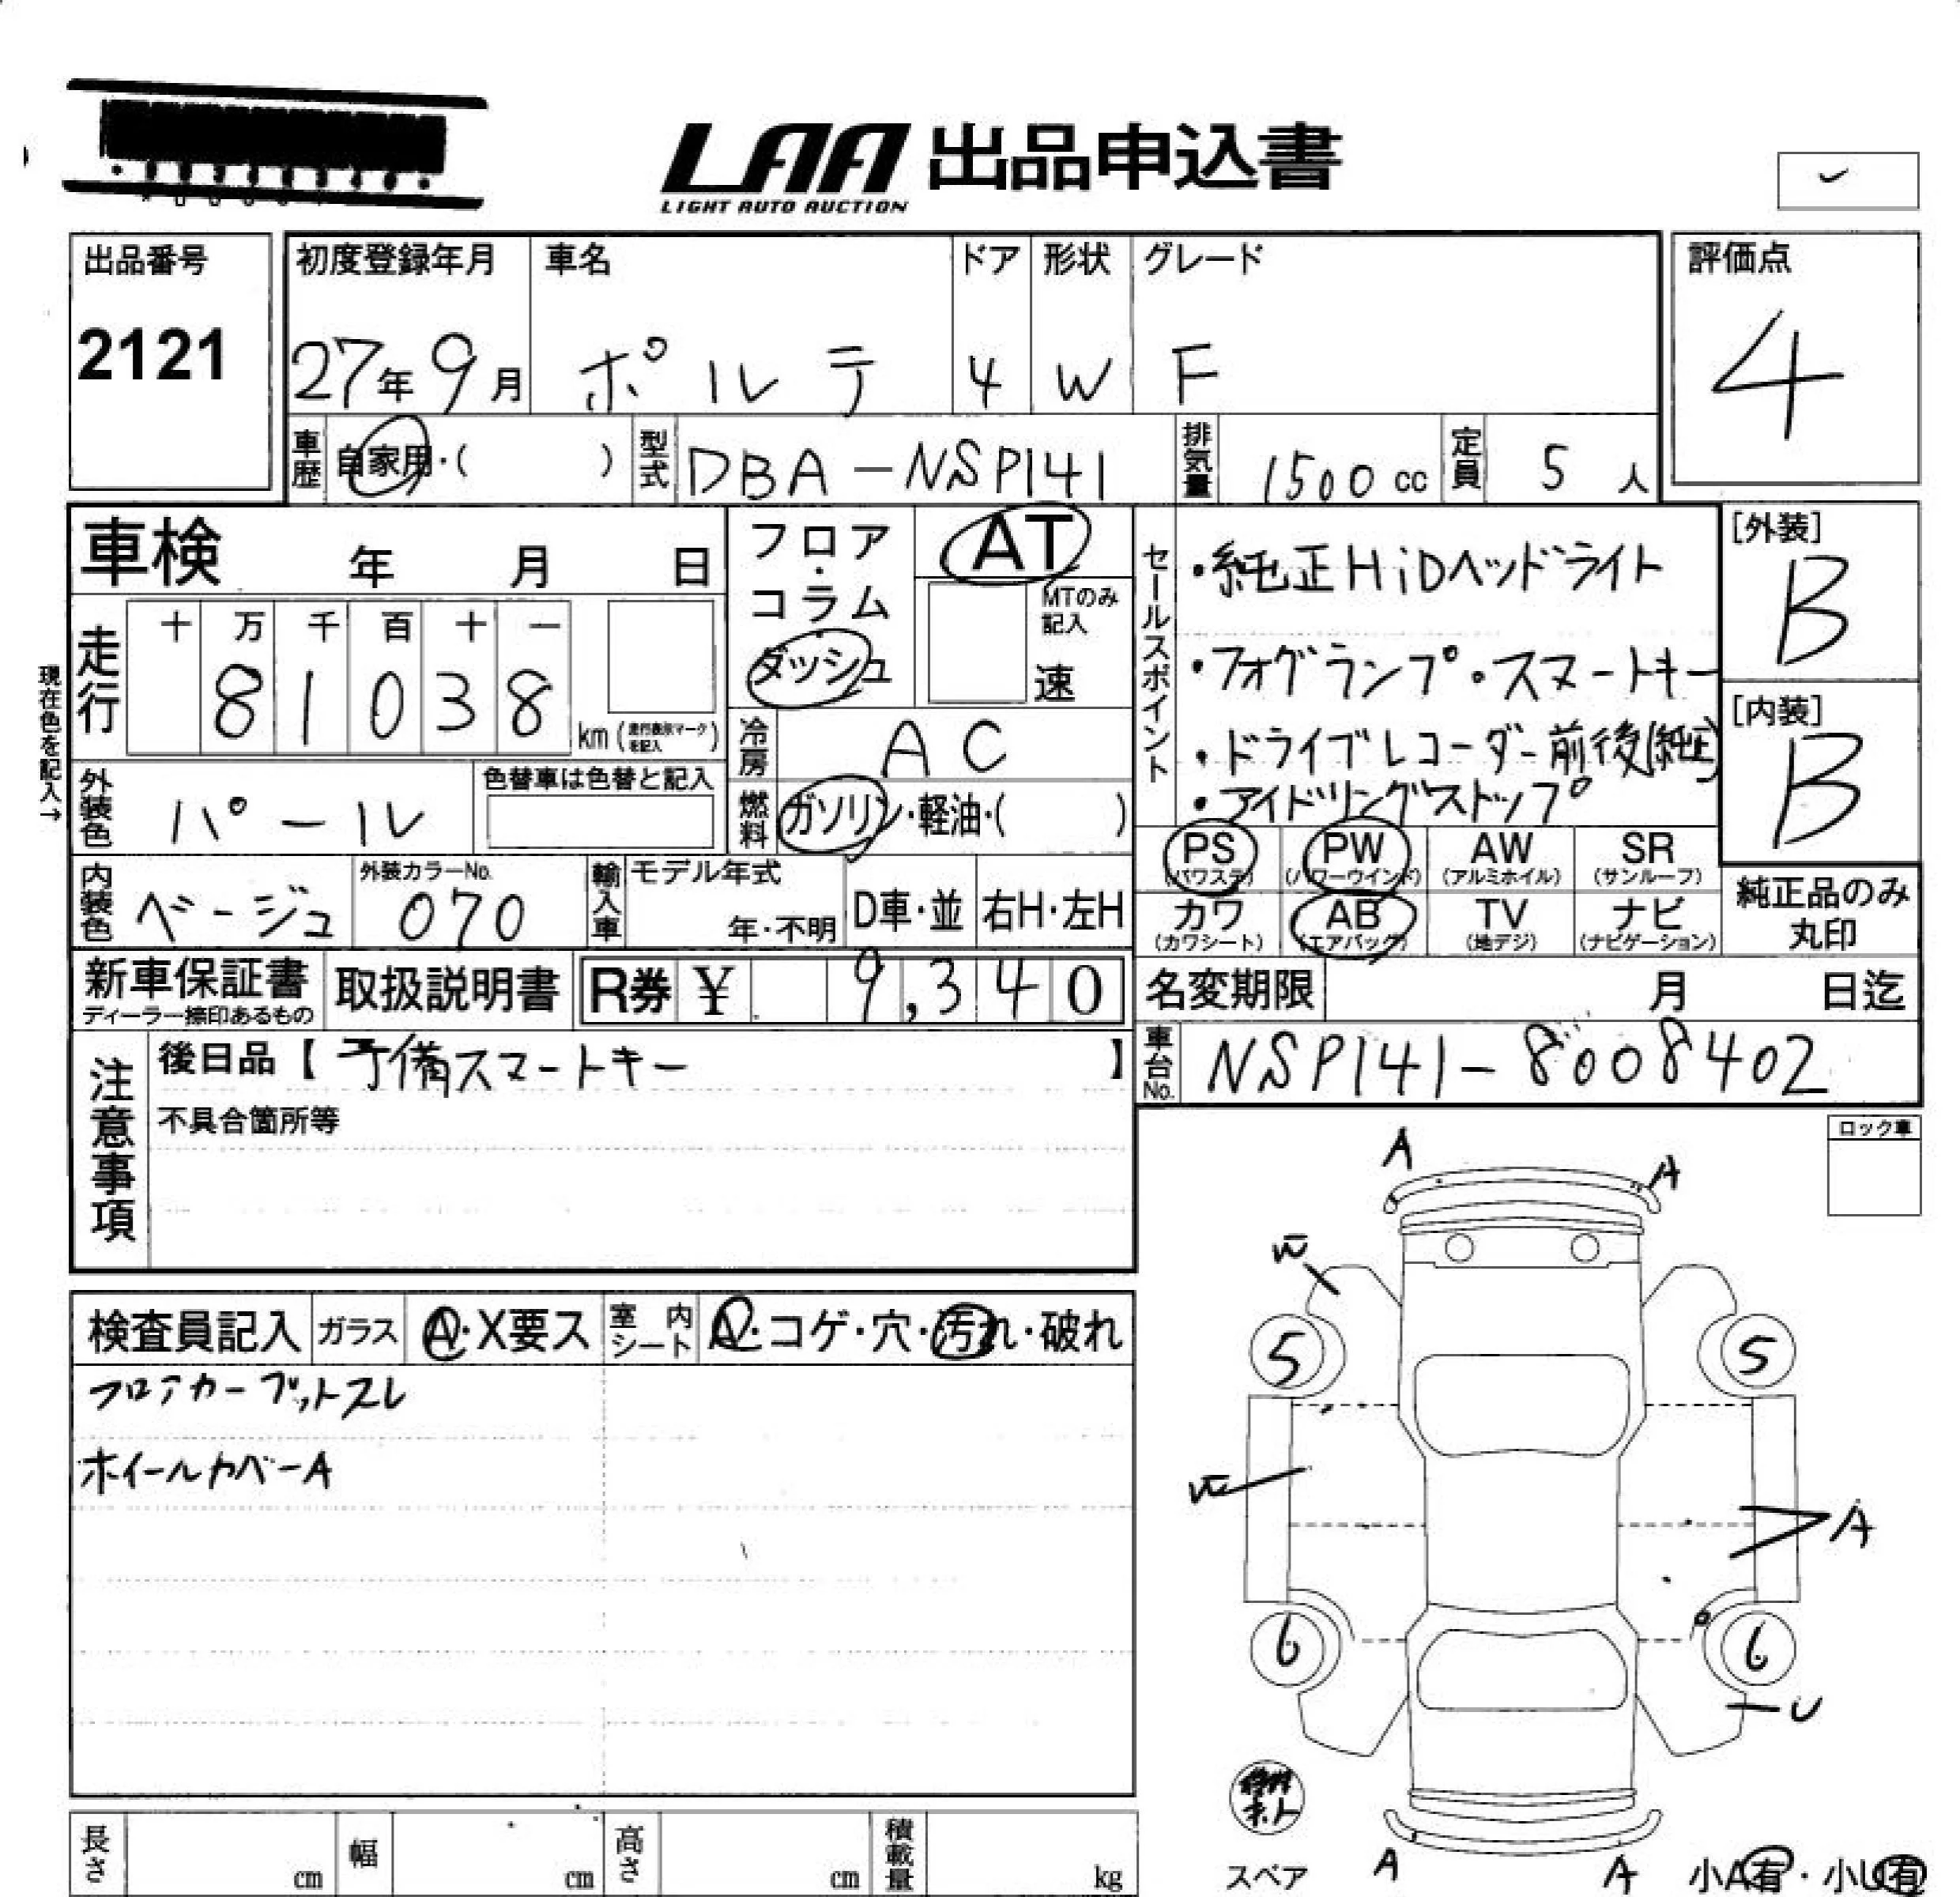 LAA 出品申込書
LIGHT AUTO AUCTION
出品番号
2121
初度登録年月 車名 ドア 形状 グレード
27年9月 ポルテ 4 W F
評価点
4
車歴 自家用・( ) 型式 DBA-NSP141 排気量 1500cc 定員 5人
車検 年 月 日
フロア・コラム
ダッシュ
AT
MTのみ記入
速
セールスポイント
・純正HiDヘッドライト
・フォグランプ・スマートキー
・ドライブレコーダー前後(純正)
・アイドリングストップ
[外装]
B
[内装]
B
現在色を記入→
走行 十 万 千 百 十 一
81038 km (走行表示マークを記入)
冷房 AC
外装色 パール 色替車は色替と記入
燃料 ガソリン・軽油・( )
PS (パワステ) PW (パワーウインド) AW (アルミホイル) SR (サンルーフ)
カワ (カワシート) AB (エアバッグ) TV (地デジ) ナビ (ナビゲーション)
純正品のみ
丸印
内装色 ベージュ 外装カラーNo. 070 輸入車 モデル年式 年・不明 D車・並 右H・左H
新車保証書 取扱説明書 R券 ¥ 9,340
ディーラー捺印あるもの
名変期限 月 日迄
車台No. NSP141-8008402
注意事項
後日品【予備スマートキー】
不具合箇所等
ロック車
検査員記入 ガラス A・X要ス 室内シート A・コゲ・穴・汚れ・破れ
フロアカーペットスレ
ホイールカバーA
A
A
W
5
5
W
A
6
6
U
A
A
スペア
小A有・小U有
長さ cm 幅 cm 高さ cm 積載量 kg